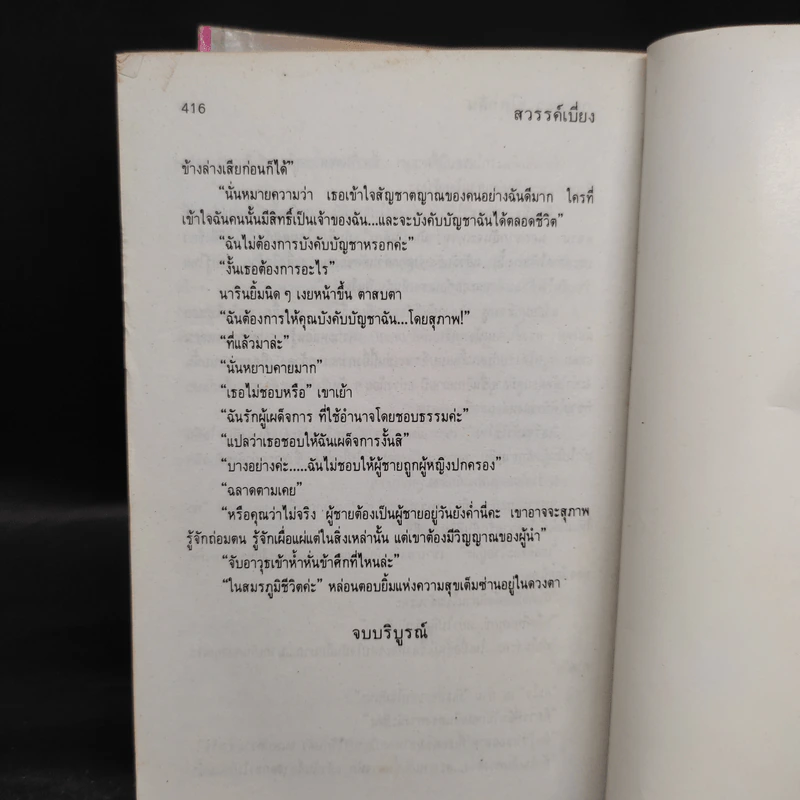 416
สวรรค์เบี่ยง
ข้างล่างเสียก่อนก็ได้”
“นั่นหมายความว่า เธอเข้าใจสัญชาตญาณของคนอย่างฉันดีมาก ใครที่
เข้าใจฉันคนนั้นมีสิทธิ์เป็นเจ้าของฉัน...และจะบังคับบัญชาฉันได้ตลอดชีวิต”
“ฉันไม่ต้องการบังคับบัญชาหรอกค่ะ”
“งั้นเธอต้องการอะไร”
นารินยิ้มนิด ๆ เงยหน้าขึ้น ตาสบตา
“ฉันต้องการให้คุณบังคับบัญชาฉัน...โดยสุภาพ!”
“ที่แล้วมาล่ะ”
“นั่นหยาบคายมาก”
“เธอไม่ชอบหรือ” เขาเย้า
“ฉันรักผู้เผด็จการ ที่ใช้อำนาจโดยชอบธรรมค่ะ”
“แปลว่าเธอชอบให้ฉันเผด็จการงั้นสิ”
“บางอย่างค่ะ.....ฉันไม่ชอบให้ผู้ชายถูกผู้หญิงปกครอง”
“ฉลาดตามเคย”
“หรือคุณว่าไม่จริง ผู้ชายต้องเป็นผู้ชายอยู่วันยังค่ำนี่คะ เขาอาจจะสุภาพ
รู้จักถ่อมตน รู้จักเผื่อแผ่แต่ในสิ่งเหล่านั้น แต่เขาต้องมีวิญญาณของผู้นำ”
“จับอาวุธเข้าห้ำหั่นข้าศึกที่ไหนล่ะ”
“ในสมรภูมิชีวิตค่ะ” หล่อนตอบยิ้มแห่งความสุขเต็มซ่านอยู่ในดวงตา
จบบริบูรณ์